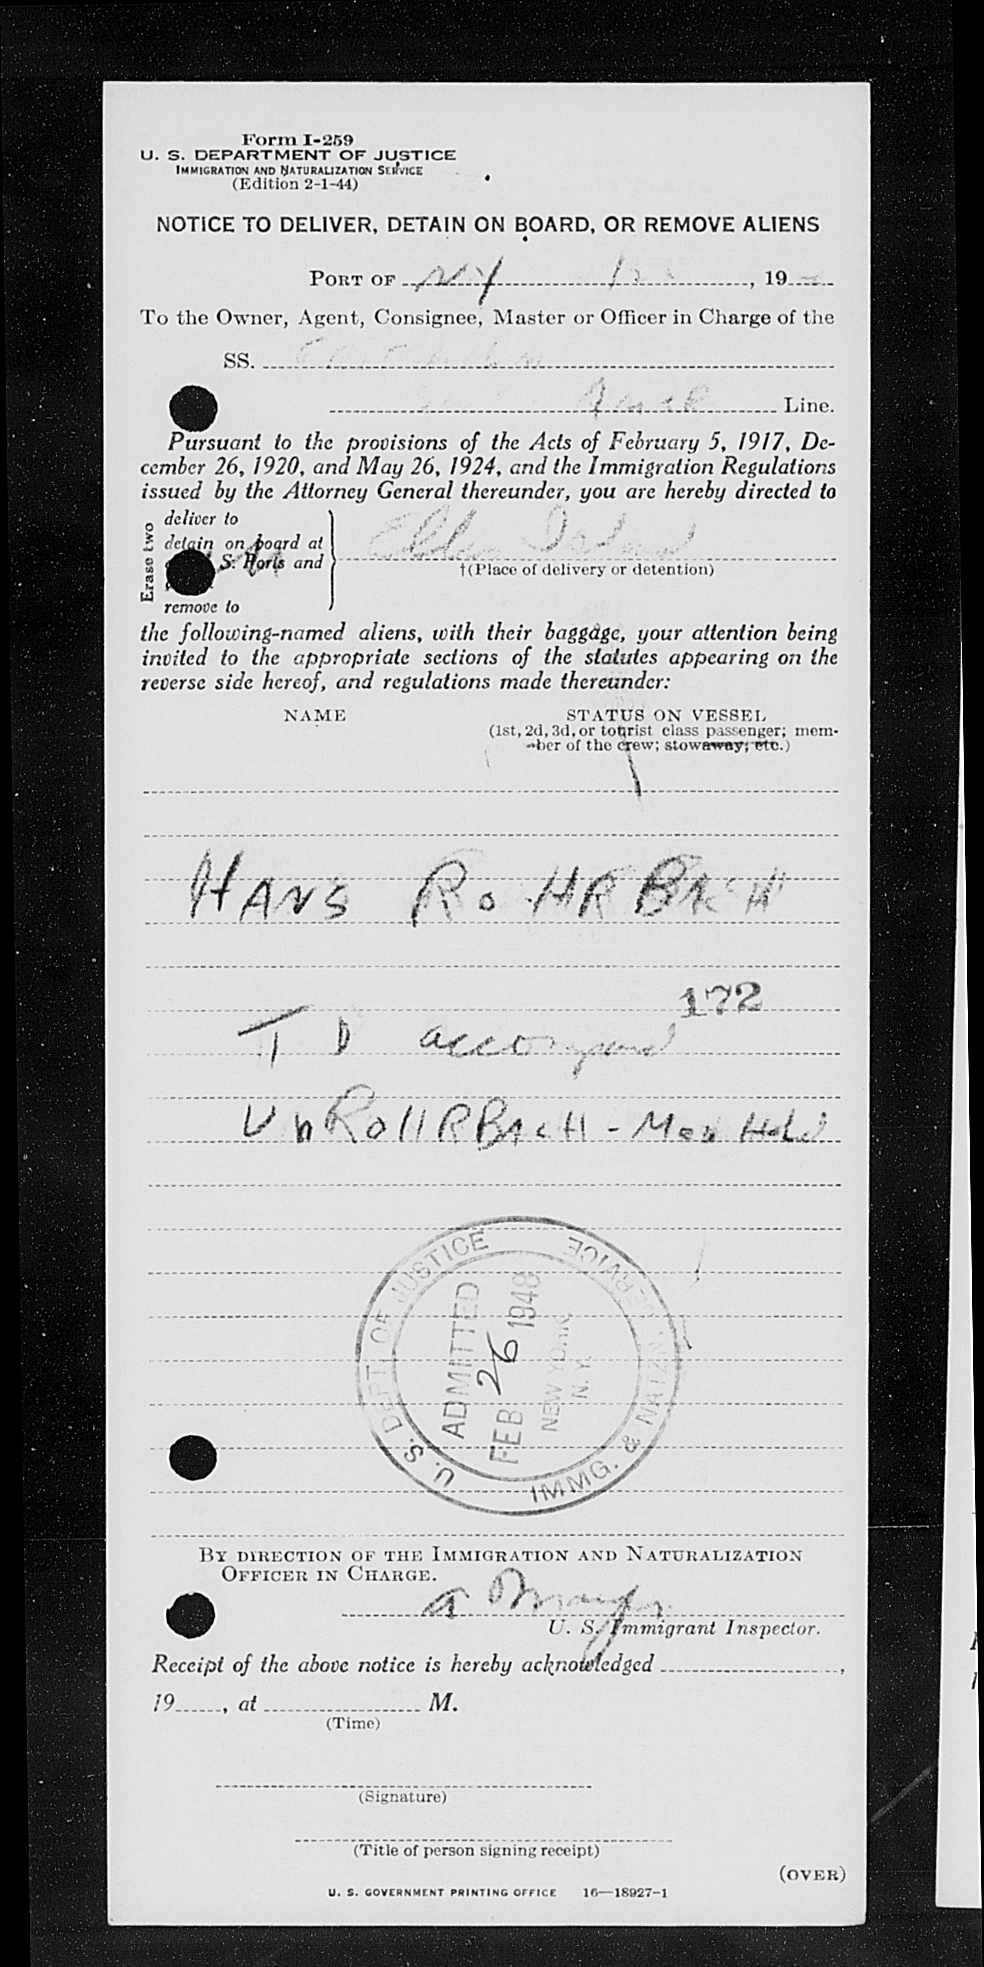 Form I-259
U. S. DEPARTMENT OF JUSTICE
IMMIGRATION AND NATURALIZATION SERVICE
(Edition 2-1-44)
NOTICE TO DELIVER, DETAIN ON BOARD, OR REMOVE ALIENS
PORT OF NY , 19
To the Owner, Agent, Consignee, Master or Officer in Charge of the
SS.
Line.
Pursuant to the provisions of the Acts of February 5, 1917, De-
cember 26, 1920, and May 26, 1924, and the Immigration Regulations
issued by the Attorney General thereunder, you are hereby directed to
Erase two
deliver to
detain on board at
S. Horis and
remove to
Ellis Island
†(Place of delivery or detention)
the following-named aliens, with their baggage, your attention being
invited to the appropriate sections of the statutes appearing on the
reverse side hereof, and regulations made thereunder:
NAME STATUS ON VESSEL
(1st, 2d, 3d, or tourist class passenger; mem-
ber of the crew; stowaway; etc.)
HANS ROHRBACH
172
T D accompand
ROHRBACH - Med Hold
U. S. DEPT OF JUSTICE
IMMG. & NATZN SERVICE
ADMITTED
FEB 26 1948
NEW YORK,
N. Y.
BY DIRECTION OF THE IMMIGRATION AND NATURALIZATION
OFFICER IN CHARGE.
U. S. Immigrant Inspector.
Receipt of the above notice is hereby acknowledged ,
19 , at M.
(Time)
(Signature)
(Title of person signing receipt)
(OVER)
U. S. GOVERNMENT PRINTING OFFICE 16—18927-1